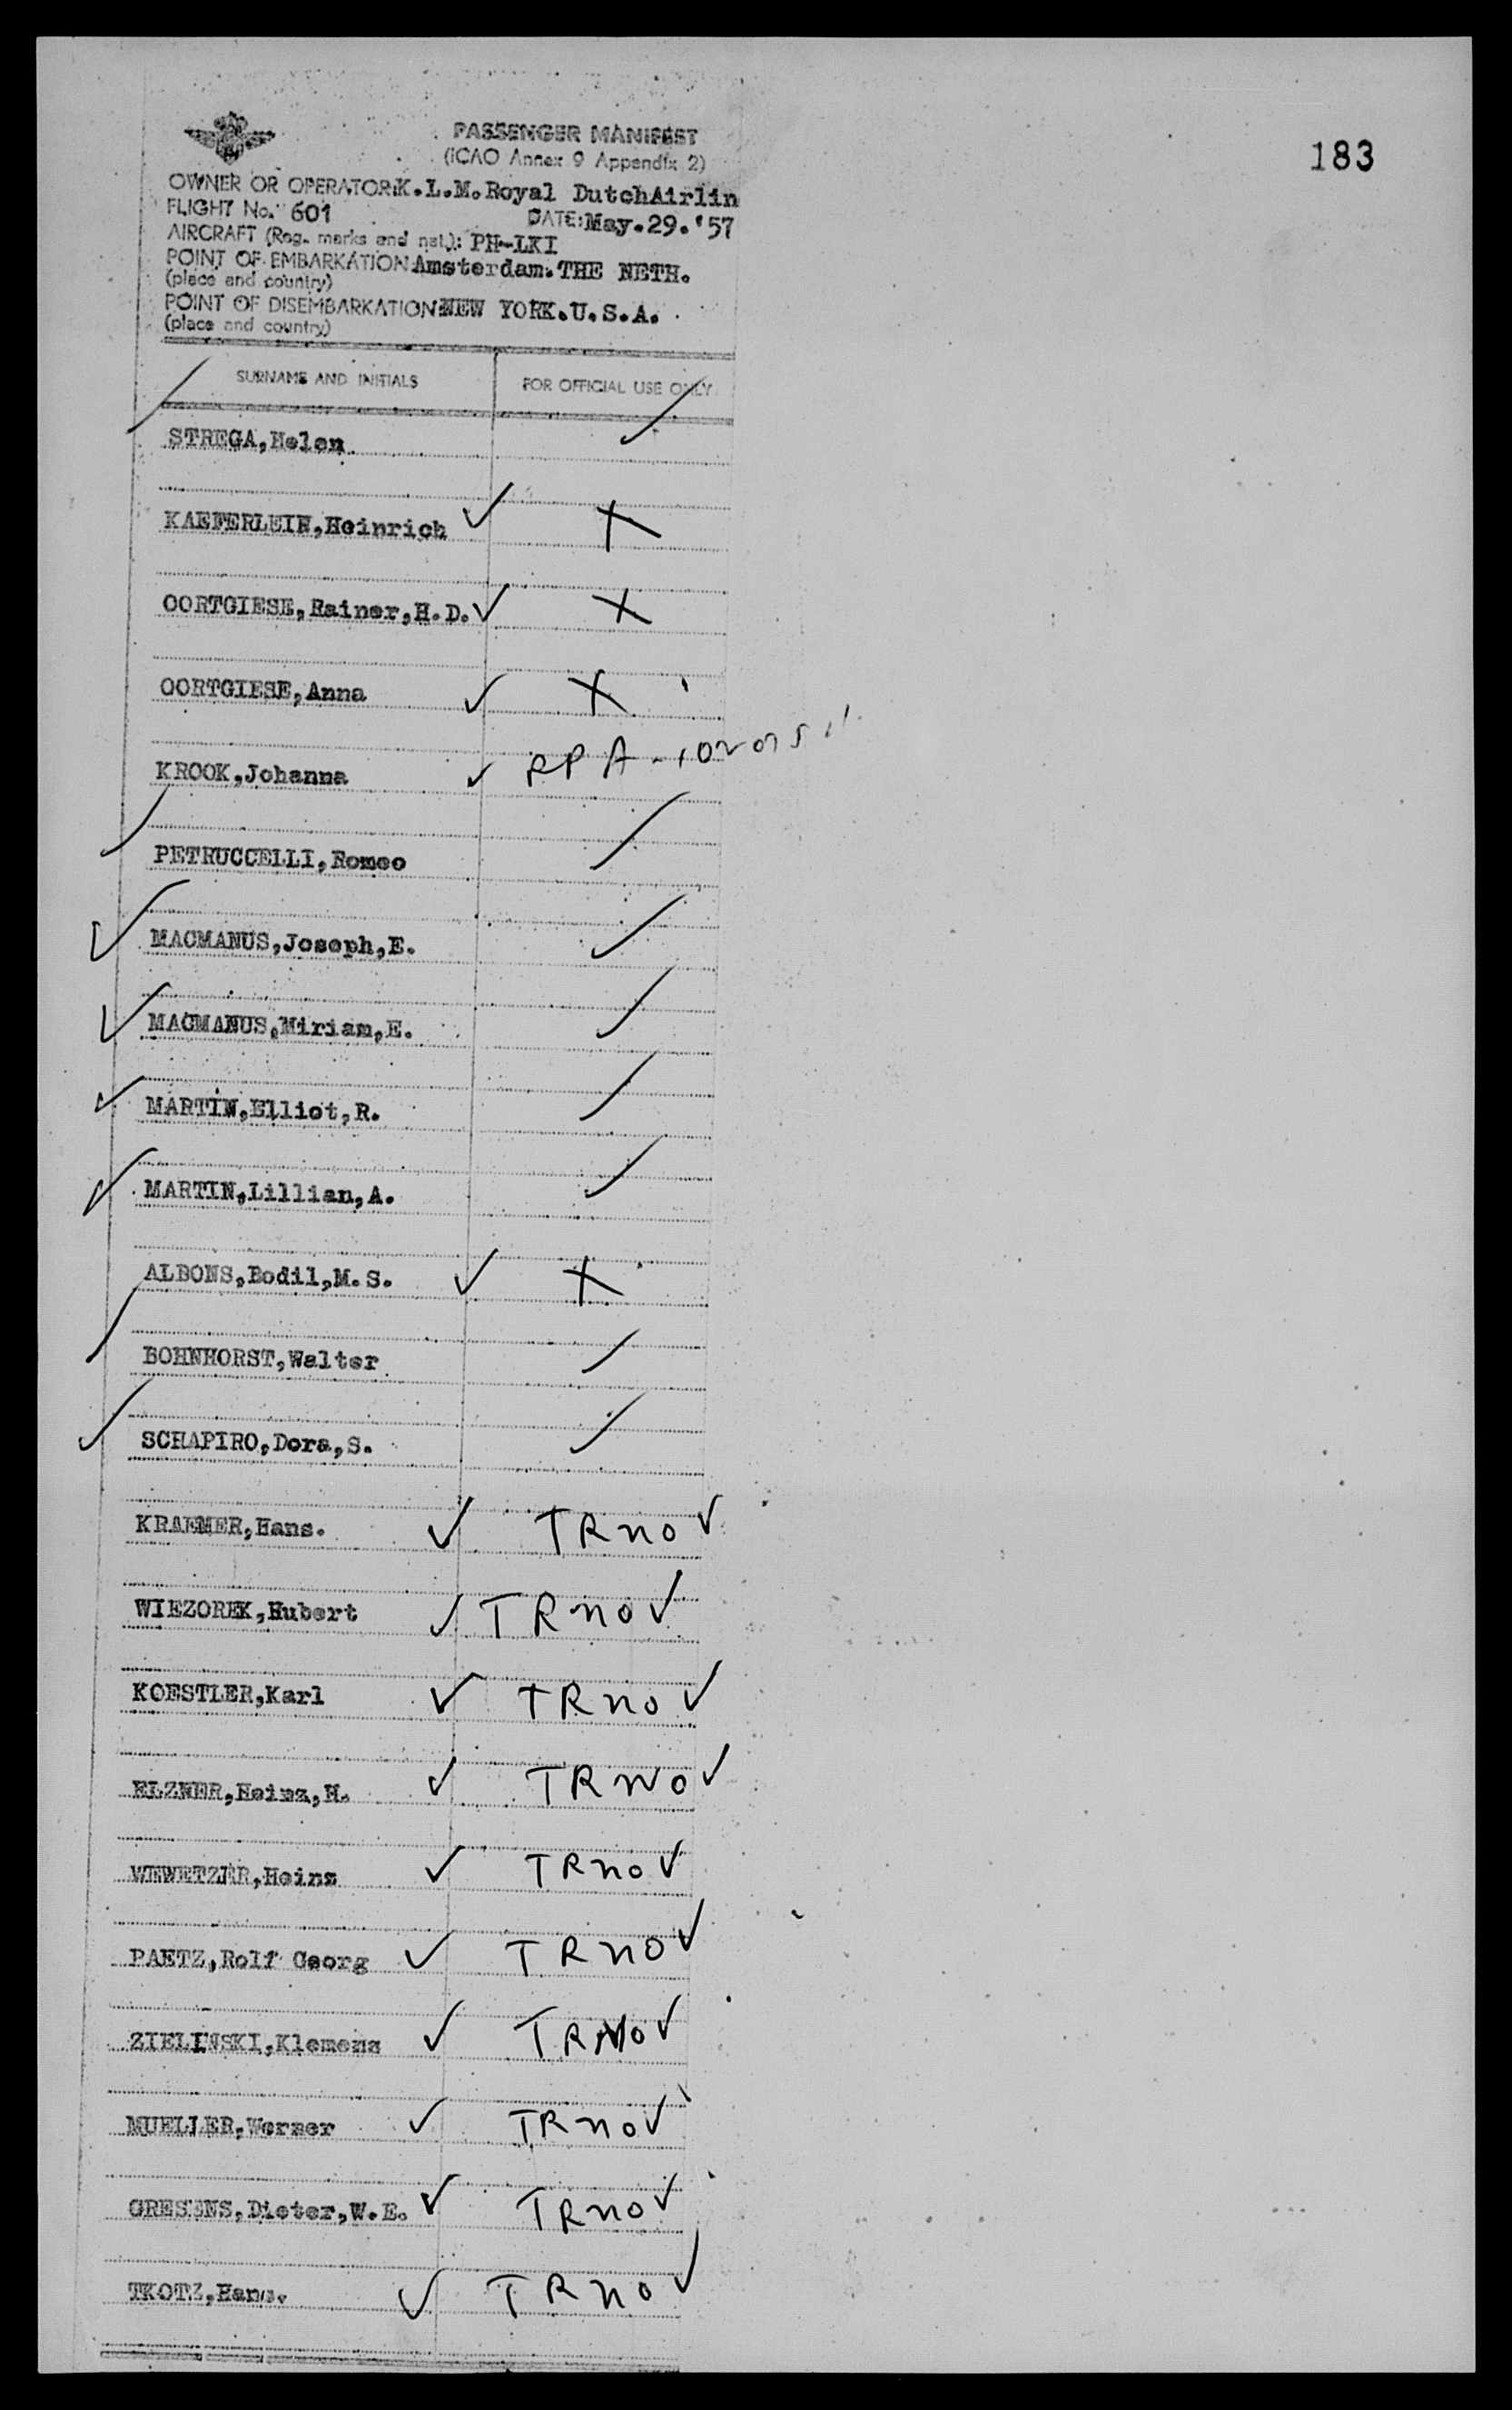 183
PASSENGER MANIFEST
(ICAO Annex 9 Appendix 2)
OWNER OR OPERATOR: K.L.M. Royal DutchAirlin
FLIGHT No. 601 DATE: May.29.'57
AIRCRAFT (Reg. marks and nat.): PH-LKI
POINT OF EMBARKATION Amsterdam. THE NETH.
(place and country)
POINT OF DISEMBARKATION NEW YORK.U.S.A.
(place and country)
SURNAME AND INITIALS FOR OFFICIAL USE ONLY
STREGA,Helen
KAEFERLEIN,Heinrich X
OORTGIESE,Rainer,H.D. X
OORTGIESE,Anna X
KROOK,Johanna RPA
PETRUCCELLI,Romeo
MACMANUS,Joseph,E.
MACMANUS,Miriam,E.
MARTIN,Elliot,R.
MARTIN,Lillian,A.
ALBONS,Bodil,M.S. X
BOHNHORST,Walter
SCHAPIRO,Dora,S.
KRAEMER,Hans. TR no
WIEZOREK,Hubert TR no
KOESTLER,Karl TR no
ELZNER,Heinz,H. TR no
WEWETZER,Heinz TR no
PAETZ,Rolf Georg TR no
ZIELINSKI,Klemens TR no
MUELLER,Werner TR no
GRESENS,Dieter,W.E. TR no
TKOTZ,Hans. TR no